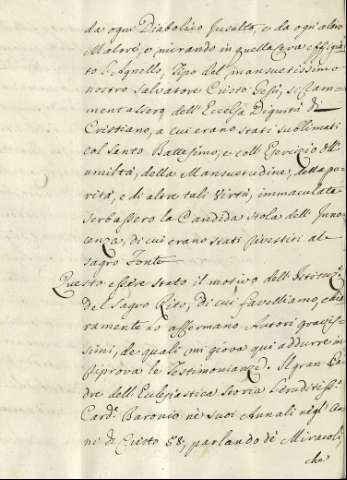 da ogni Diabolico Insulto, e da ogn'altro
Malore, e mirando in quella Cera effigia-
to l'Agnello, Tipo del mansuetissimo
nostro Salvatore Cristo Gesù, si ram-
mentassero dell'Eccelsa Dignità di
Cristiano, a cui erano stati sublimati
col Santo Battesimo, e coll'Esercizio dell'
umiltà, della Mansuetudine, della pu-
rità, e di altre tali Virtù, immaculata
serbassero la Candida Stola dell'Inno-
cenza, di cui erano stati rivestiti al
sagro Fonte
Questo essere stato il motivo dell'Istituz.
del Sagro Rito, di cui favelliamo,
ramente lo affermano Autori gravis-
simi, de quali mi giova qui addurre in
riprova le Testimonianze. Il gran Pa-
dre dell'Eclesiastica Storia l'eruditiss.
Card. Baronio ne' suoi Annali negl'An-
ni di Cristo 58, parlando de' Miracoli,
che